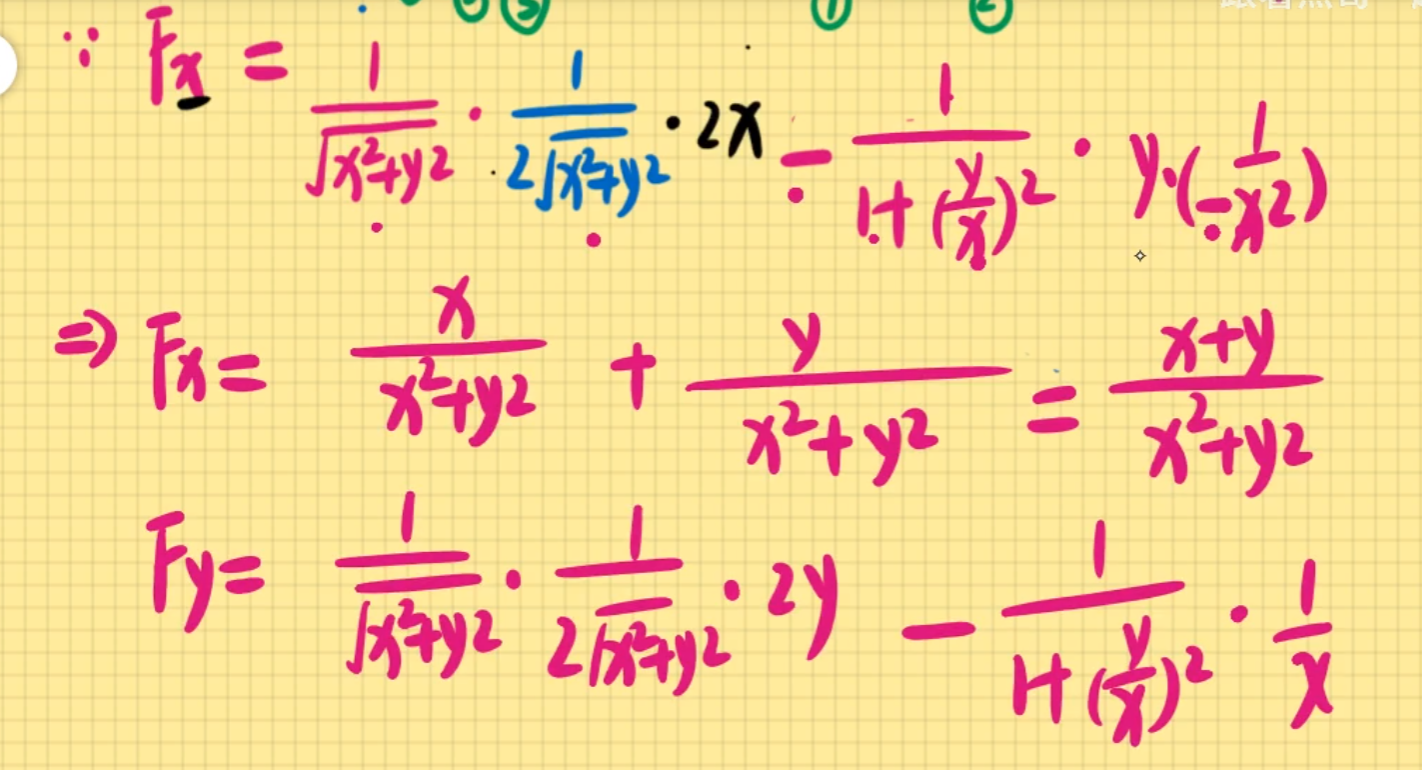 ② ③ ① ②
∵ Fx = 1/√(x²+y²) · 1/(2√(x²+y²)) · 2x - 1/(1+(y/x)²) · y·(-1/x²)
⇒ Fx = x/(x²+y²) + y/(x²+y²) = (x+y)/(x²+y²)
Fy = 1/√(x²+y²) · 1/(2√(x²+y²)) · 2y - 1/(1+(y/x)²) · 1/x